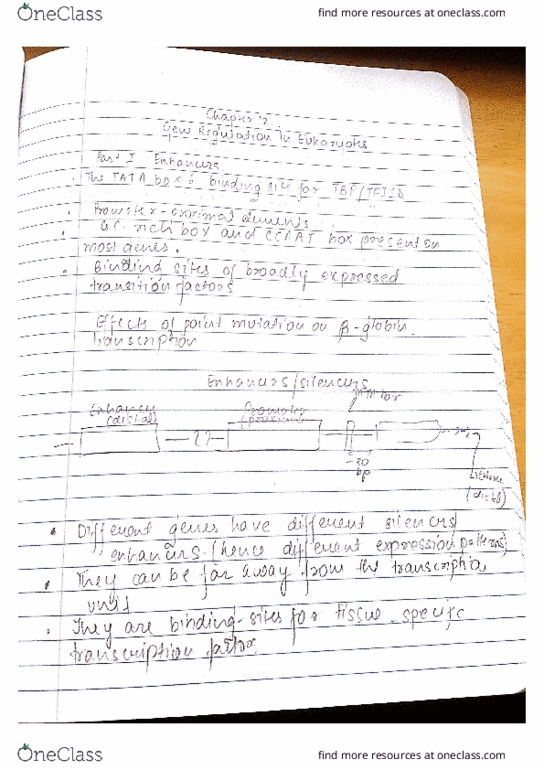 OneClass
find more resources at oneclass.com
Chapter 7
Gene Regulation In Eukaryotes
Part I Enhancers
The TATA box: binding site for TBP/TFIID
elements
GC-rich box and CCAAT box present on
most genes.
Binding sites of broadly expressed
transition factors
Effects of point mutation on β-globin
transcription
Enhancers/silencers
Enhancer Promoter
(distal) (proximal)
-30
bp
(distal)
Different genes have different silencers/
enhancers (hence different expression patterns)
They can be far away from the
unit
They are binding-sites for tissue specific
transcription factor
OneClass
find more resources at oneclass.com